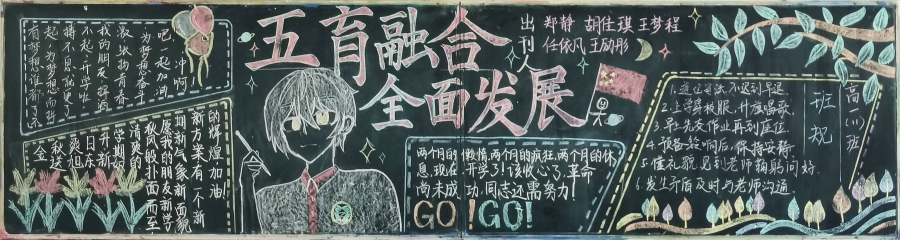 五育融合
全面发展
出刊人
郑静 胡佳琪 王梦程
任依凡 王励彤
吧一起加油
为梦想奋斗
我的朋友
不起开学啦
起为梦想而拼
有梦想谁都了不
的辉煌加油!
新方案有一个新
期新气象新面貌
愿我的朋友新学
秋风般扑面而至
清爽的
学期如
升新
日东
爽旭
秋送
金
两个月的懒惰,两个月的疯狂,两个月的休
息,现在开学了!该收心了,革命
尚未成功,同志还需努力!
GO!GO!
高一(八)班
班规
1.遵位守法不迟到早退
2.上学穿校服,升旗唱歌
3.早上先交作业再到座位
4.预备铃响后,保持安静
5.懂礼貌,见到老师鞠躬问好
6.发生矛盾及时与老师沟通